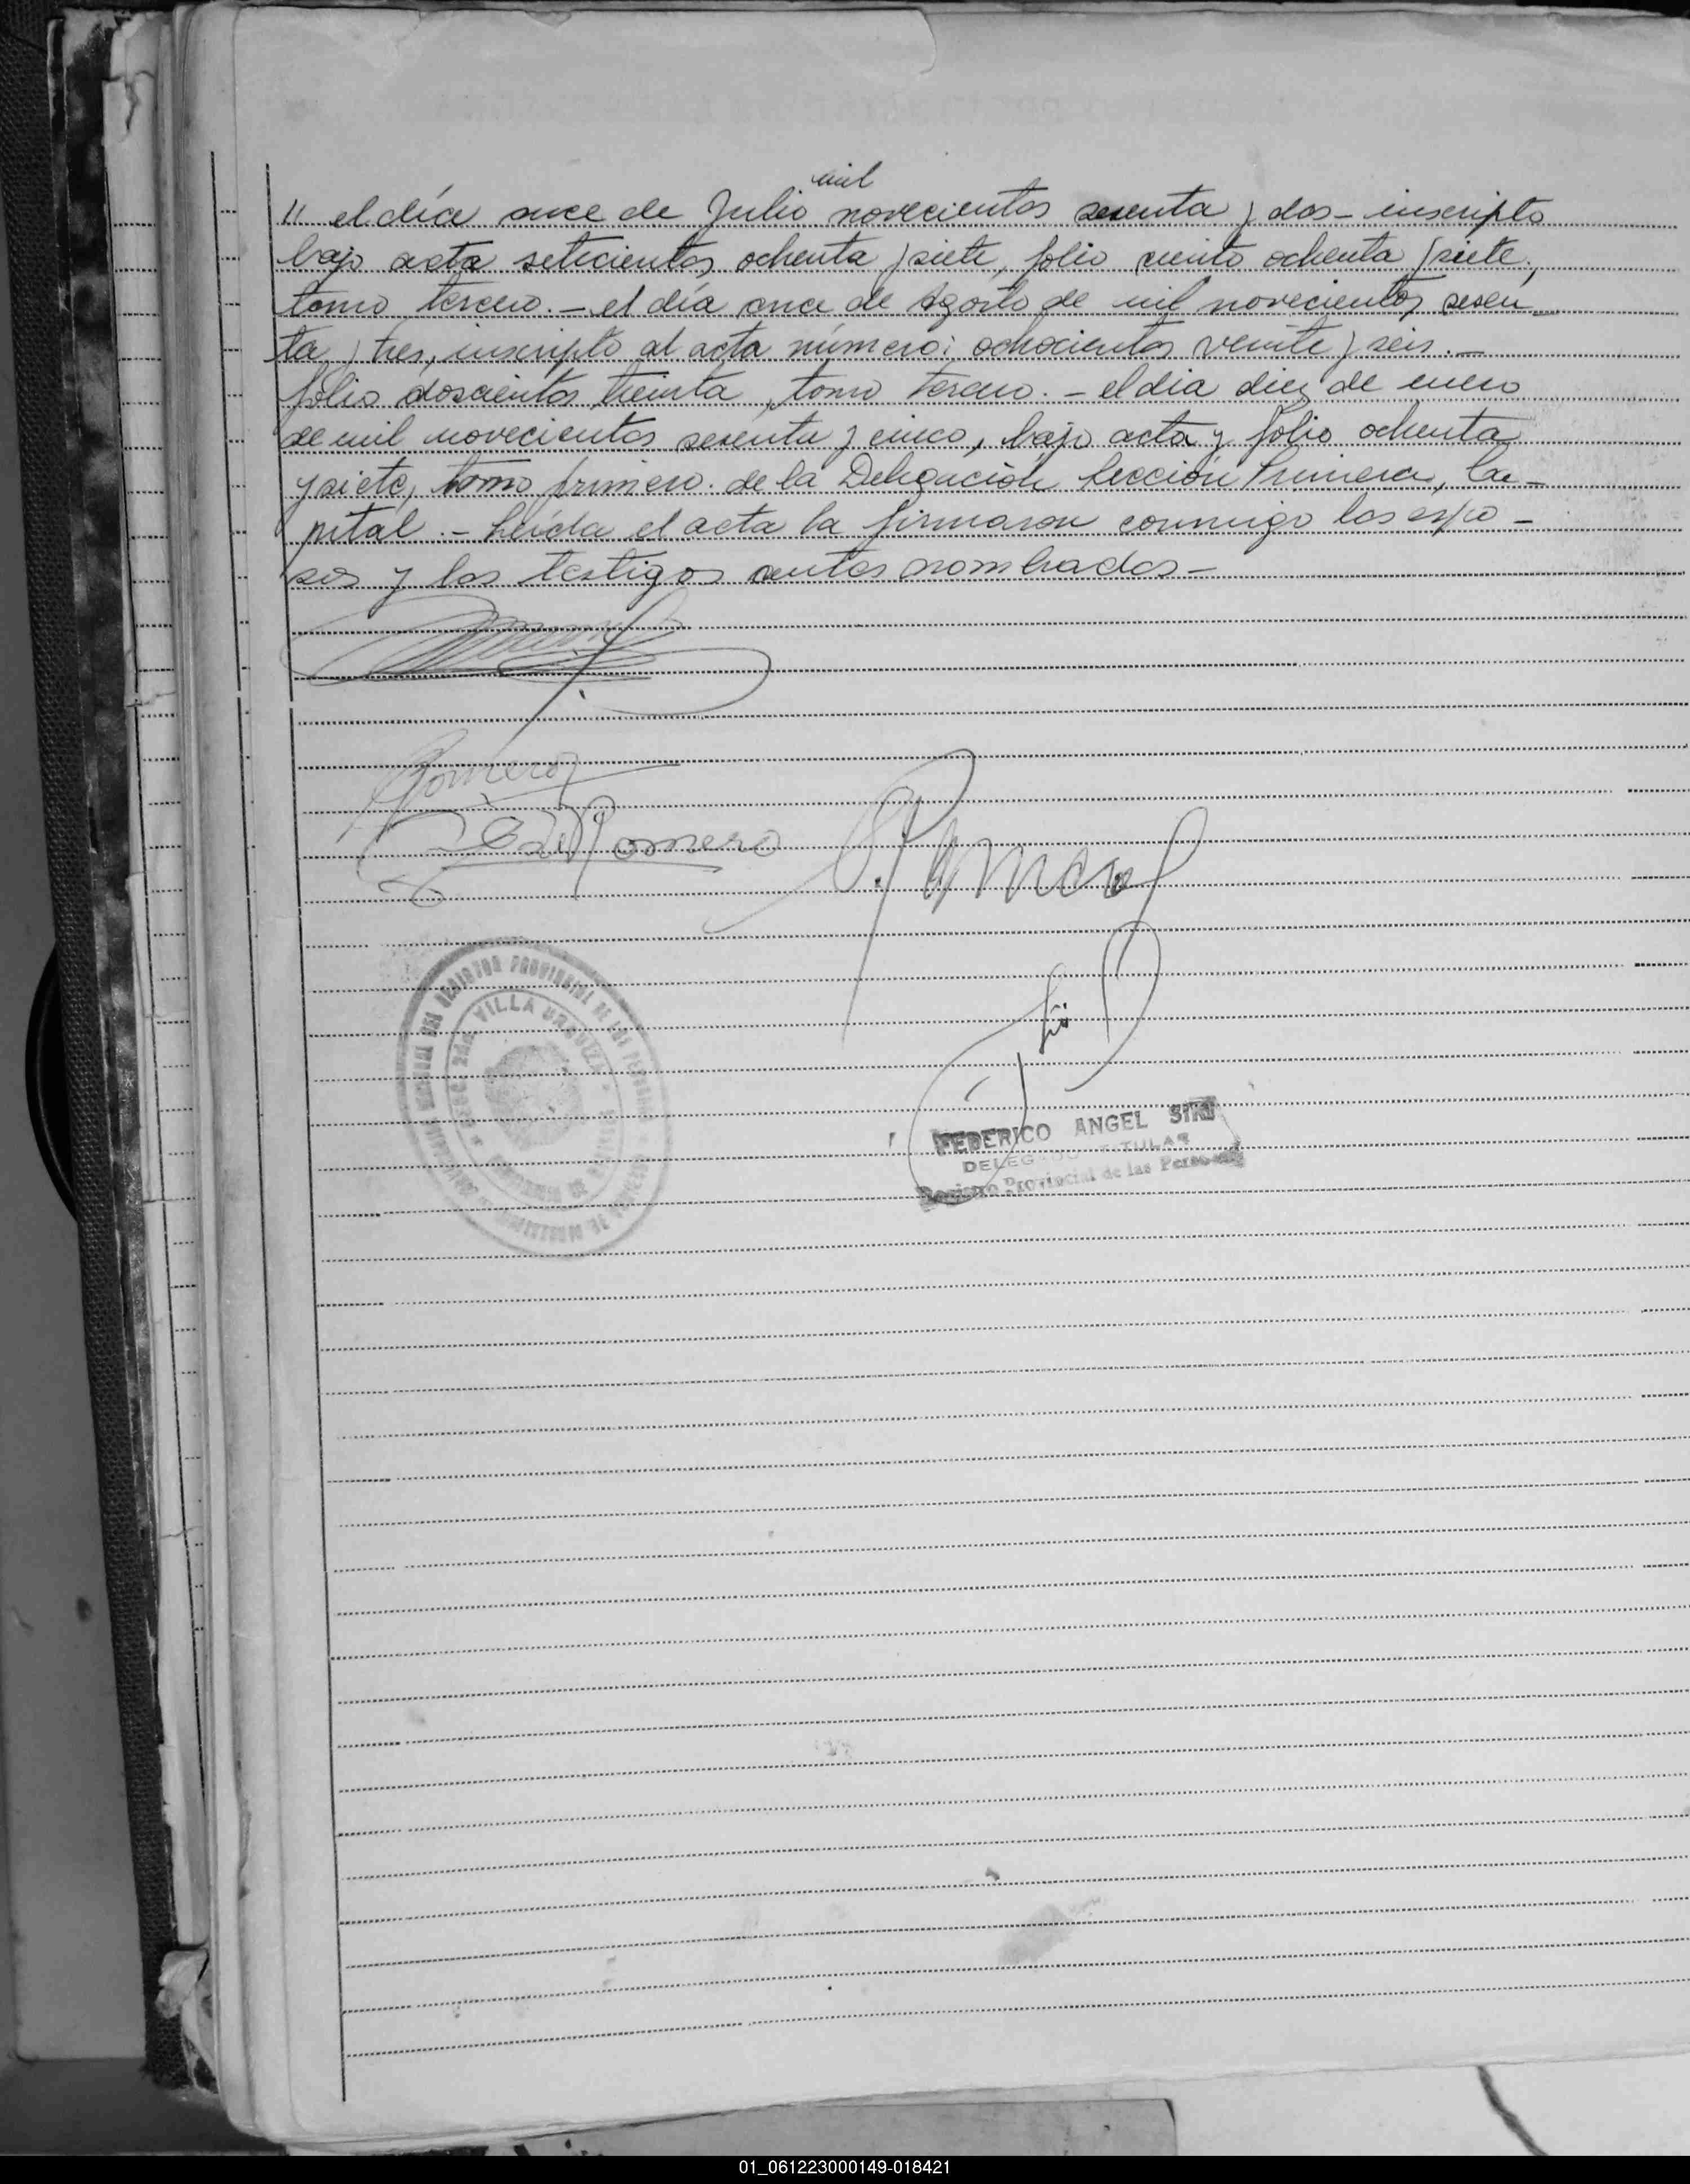 mil
" el día once de Julio novecientos sesenta y dos - inscripto
bajo acta setecientos ochenta y siete, folio ciento ochenta y siete,
tomo tercero. - el día once de Agosto de mil novecientos sesen
ta y tres, inscripto al acta número: ochocientos veinte y seis. -
folio doscientos treinta, tomo tercero. - el día diez de enero
de mil novecientos sesenta y cinco, bajo acta y folio ochenta
y siete, tomo primero. de la Delegación Sección Primera, Ca-
pital. - Leída el acta la firmaron conmigo los espo-
sos y los testigos antes nombrados -
Romero
Romero
VILLA URQUIZA
FEDERICO ANGEL SIRI
DELEGADO TITULAR
Registro Provincial de las Personas
01_061223000149-018421